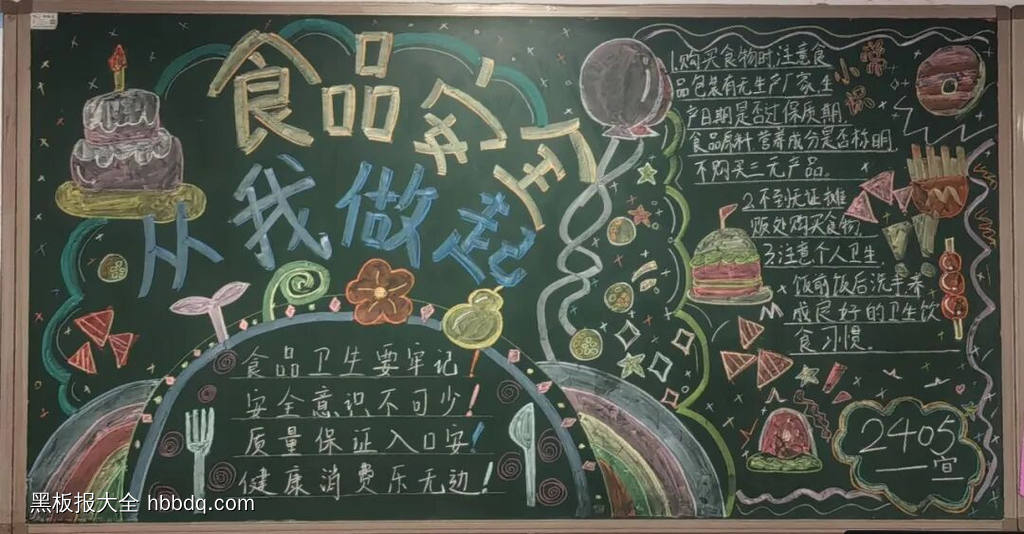 食品安全
从我做起
食品卫生要牢记!
安全意识不可少!
质量保证入口安!
健康消费乐无边!
小常识
1.购买食物时注意食
品包装有无生产厂家,生
产日期是否过保质期,
食品原料营养成分是否标明
不购买三无产品。
2.不到无证摊
贩处购买食物,
3.注意个人卫生
饭前饭后洗手养
成良好的卫生饮
食习惯。
2405
宣
黑板报大全 hbbdq.com